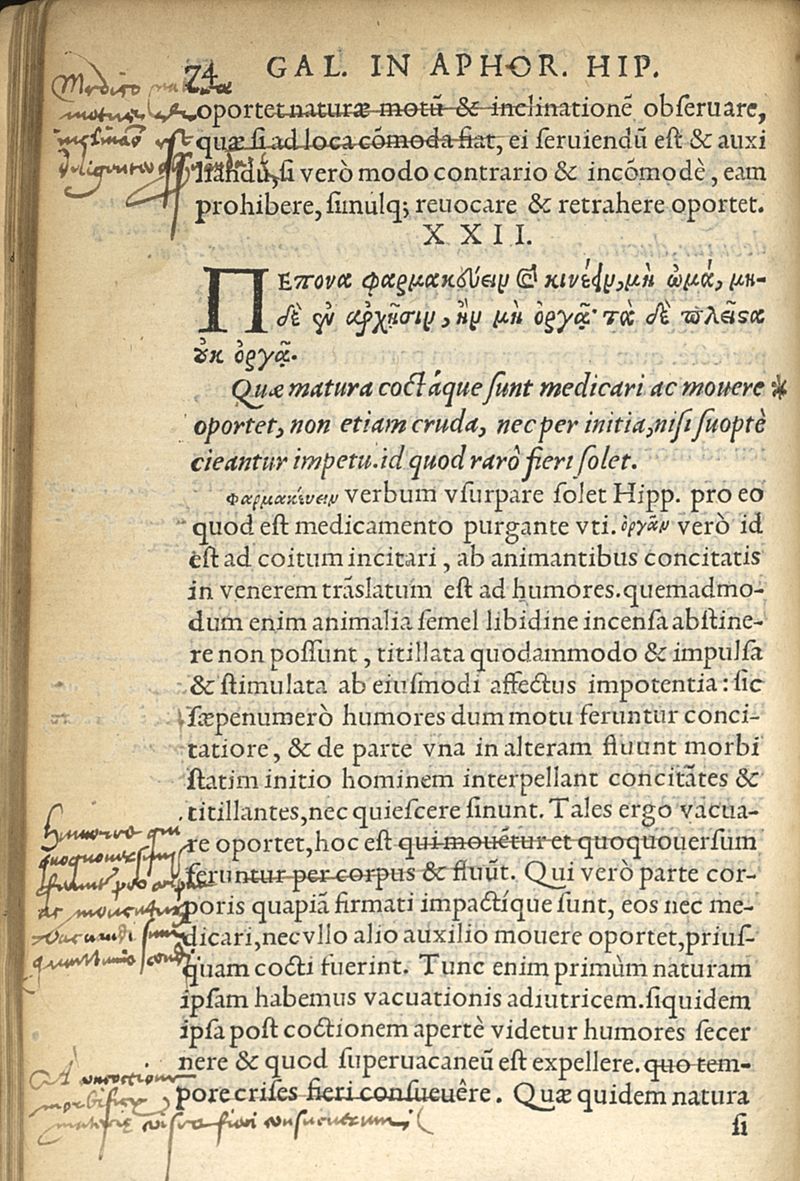 74 GAL. IN APHOR. HIP.
Medico
oportet naturæ motũ & inclinationẽ obſeruare,
quæ ſi ad loca cõmoda fiat, ei ſeruiendũ eſt & auxi
liandũ, ſi verò modo contrario & incõmodè, eam
prohibere, ſimulq; reuocare & retrahere oportet.
XXII.
Πέπονα φαρμακεύειν καὶ κινέειν, μὴ ὠμά, μη-
δὲ ἐν ἀρχῇσιν, ἢν μὴ ὀργᾷ· τὰ δὲ πλεῖστα
οὐκ ὀργᾷ.
Quæ matura coctáque ſunt medicari ac mouere *
oportet, non etiam cruda, nec per initia, niſi ſuoptè
cieantur impetu. id quod rarò fieri ſolet.
Φαρμακεύειν verbum vſurpare ſolet Hipp. pro eo
quod eſt medicamento purgante vti. ὀργᾷν verò id
eſt ad coitum incitari, ab animantibus concitatis
in venerem trãſlatum eſt ad humores. quemadmo-
dum enim animalia ſemel libidine incenſa abſtine-
re non poſſunt, titillata quodammodo & impulſa
& ſtimulata ab eiuſmodi affectus impotentia: ſic
ſæpenumerò humores dum motu feruntur conci-
tatiore, & de parte vna in alteram fluunt morbi
ſtatim initio hominem interpellant concitãtes &
titillantes, nec quieſcere ſinunt. Tales ergo vacua-
re oportet, hoc eſt qui mouẽtur et quoquouerſum
feruntur per corpus & fluũt. Qui verò parte cor-
poris quapiã firmati impactíque ſunt, eos nec me-
dicari, nec vllo alio auxilio mouere oportet, priuſ-
quam cocti fuerint. Tunc enim primùm naturam
ipſam habemus vacuationis adiutricem. ſiquidem
ipſa poſt coctionem apertè videtur humores ſecer
nere & quod ſuperuacaneũ eſt expellere. quo tem-
pore criſes fieri conſueuêre. Quæ quidem natura
ſi
Humores qui
quoquouersum
feruntur
ac mouentur
vacuandi sunt
A concoctione
morbificæ
materiæ crises fieri consueuerunt